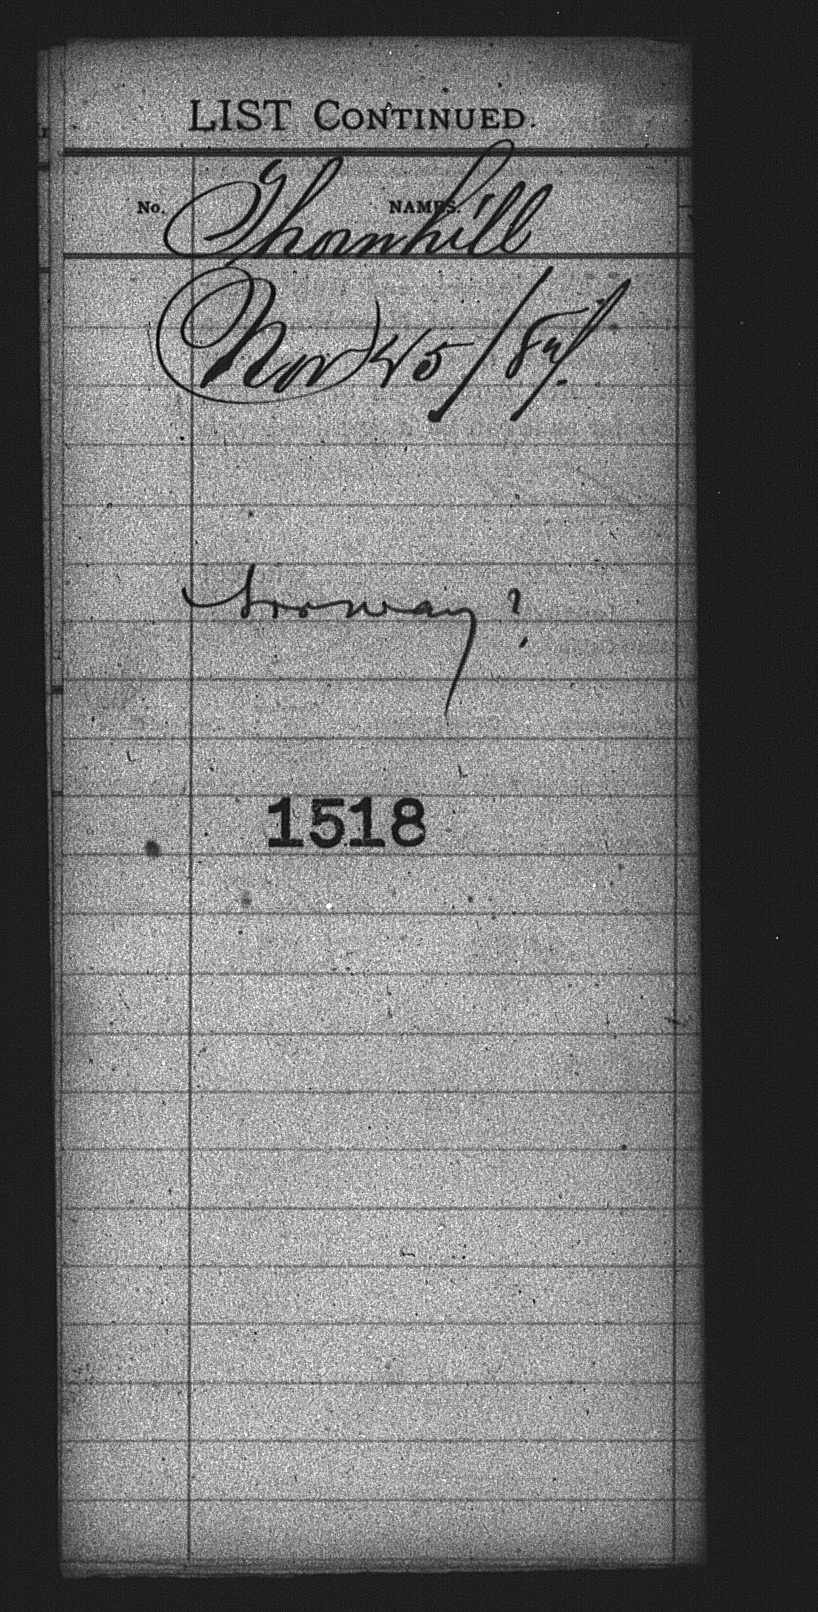 LIST CONTINUED.
No. NAMES.
Thornhill
Nov 25/87.
Norway?
1518